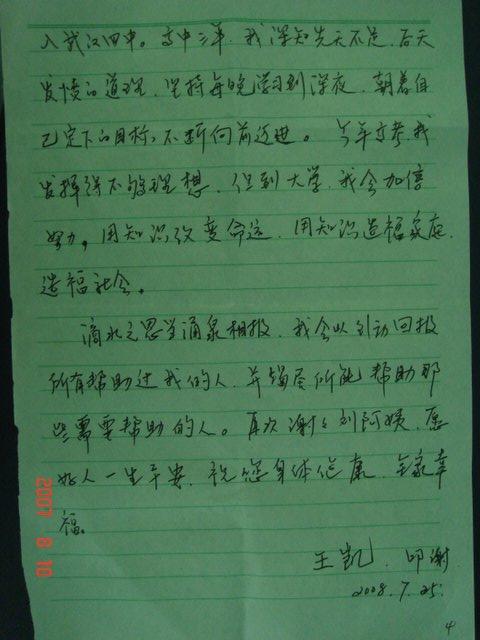 入武汉四中。高中三年，我深知先天不足，后天
发愤的道理，坚持每晚学习到深夜，朝着自
己定下的目标，不断向前迈进。今年高考，我
发挥得不够理想，但到大学，我会加倍
努力，用知识改变命运，用知识造福家庭，
造福社会。
滴水之恩当涌泉相报，我会以行动回报
所有帮助过我的人，并竭尽所能帮助那
些需要帮助的人。再次谢谢刘阿姨，愿
好人一生平安，祝您身体健康，全家幸
福。
王凯 叩谢
2008.7.25.
4
2007 8 10